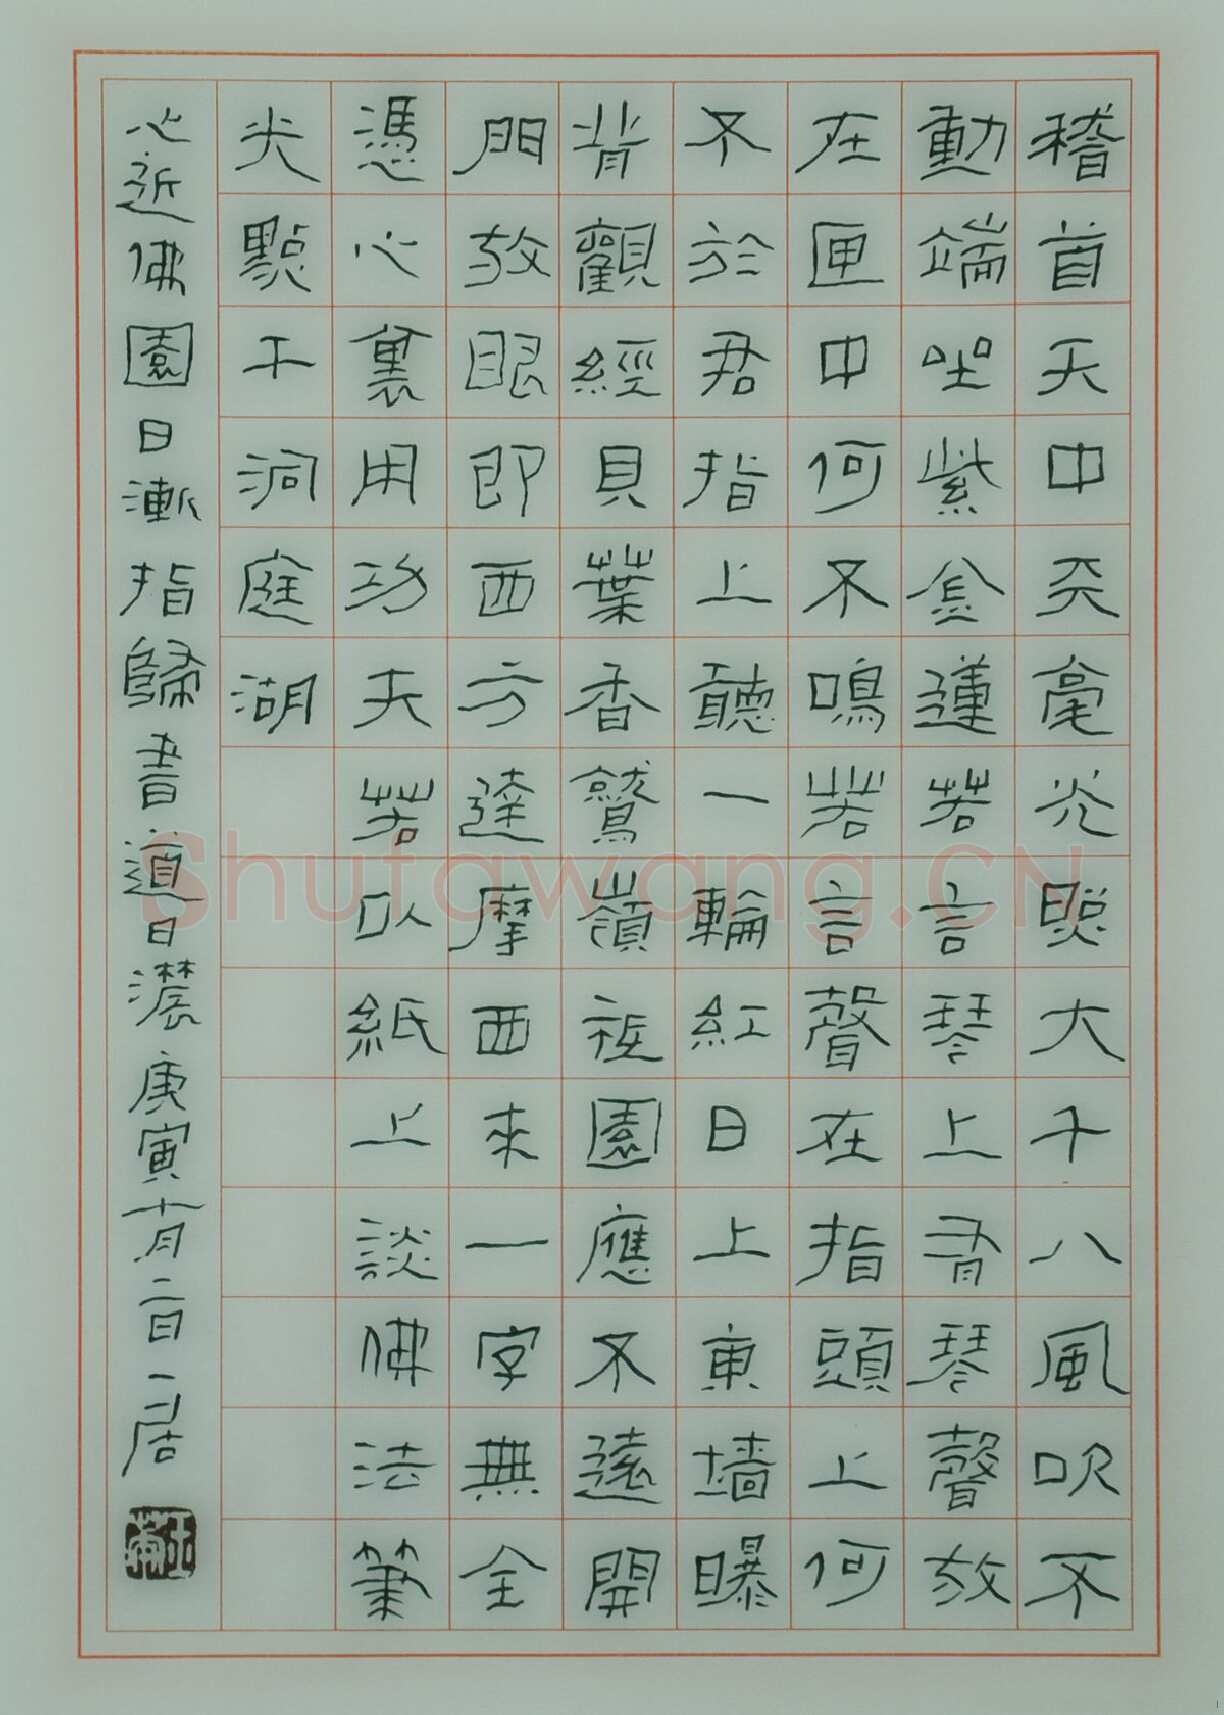 稽首天中天毫光照大千八風吹不
動端坐紫金蓮若言琴上有琴聲放
在匣中何不鳴若言聲在指頭上何
不於君指上聽一輪紅日上東墻曝
背觀經貝葉香鷲嶺祇園應不遠開
門放眼即西方達摩西來一字無全
憑心裏用功夫若以紙上談佛法筆
尖點干洞庭湖
心近佛園日漸指歸書道日濃庚寅十月二日一居
Shufawang.CN